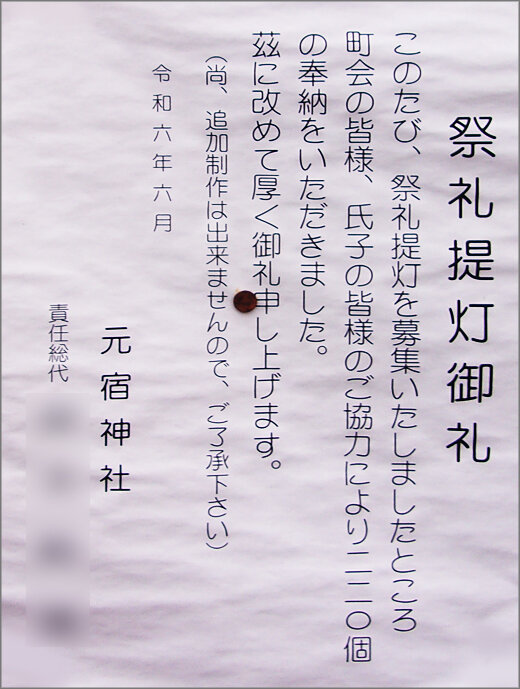 祭礼提灯御礼
このたび、祭礼提灯を募集いたしましたところ
町会の皆様、氏子の皆様のご協力により二二〇個
の奉納をいただきました。
茲に改めて厚く御礼申し上げます。
（尚、追加制作は出来ませんので、ご了承下さい）
令和六年六月
元宿神社
責任総代